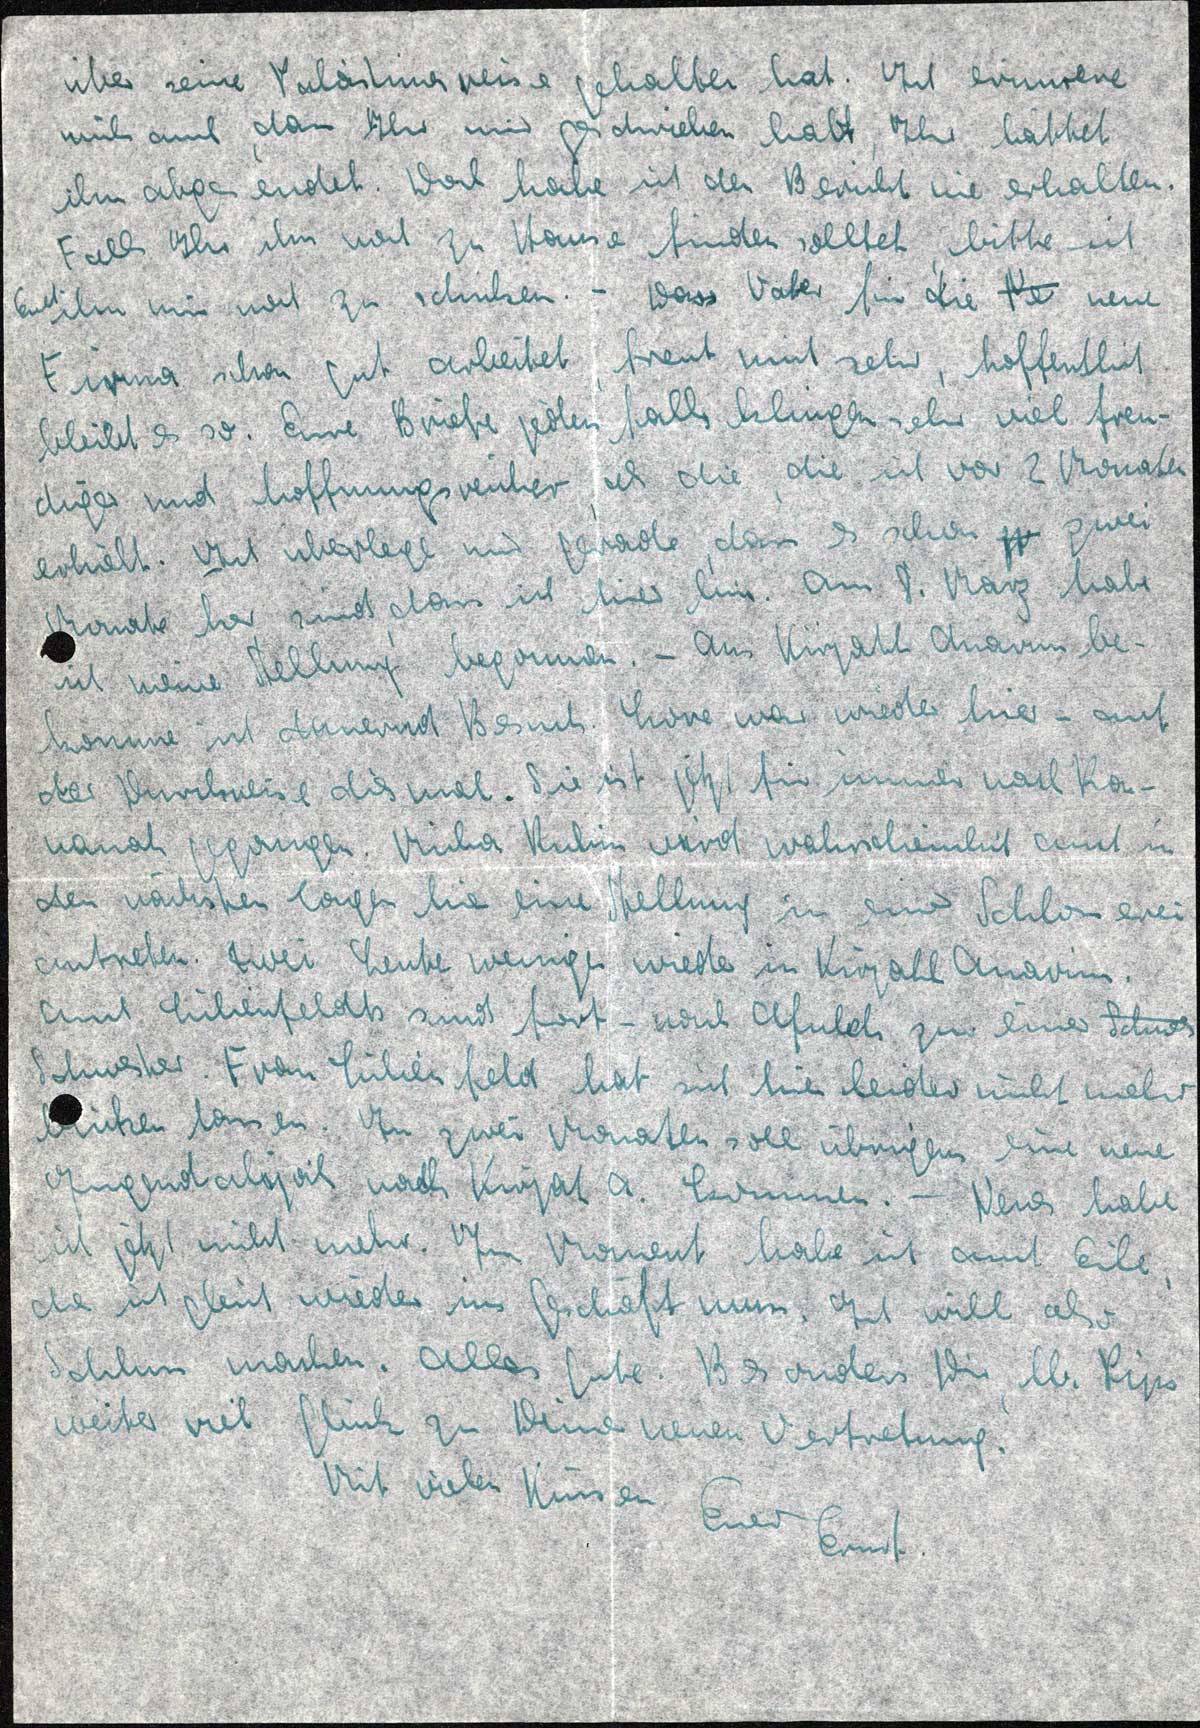 über seine Palästinareise gehalten hat. Ich erinnere
mich auch, dass Ihr mir geschrieben habt, Ihr hättet
ihn abgesendet. Doch habe ich den Bericht nie erhalten.
Falls Ihr ihn noch zu Hause finden solltet, bitte ich
Euch ihn mir noch zu schicken. – Dass Vater für die neue
Firma schon gut arbeitet, freut mich sehr, hoffentlich
bleibt es so. Eure Briefe jedenfalls klingen sehr viel freu-
diger und hoffnungsreicher als die, die ich vor 2 Monaten
erhielt. Ich überlege mir gerade, dass es schon zwei
Monate her sind, dass ich hier bin. Am 8. März habe
ich meine Stellung begonnen. – Aus Kirjath Anavim be-
komme ich dauernd Besuch. Lore war wieder hier – auf
der Durchreise diesmal. Sie ist jetzt für immer nach Ra-
nanah gegangen. Micha Rubin wird wahrscheinlich auch in
den nächsten Tagen hier eine Stellung in einer Schlosserei
antreten. Zwei Leute weniger wieder in Kirjath Anavim.
Auch Lilienfeldts sind fort – nach Afuleh zu einer
Schwester. Frau Lilienfeld hat sich hier leider nicht mehr
blicken lassen. In zwei Monaten soll übrigens eine neue
Jugendalijah nach Kirjat A. kommen. – Neues habe
ich jetzt nicht mehr. Im Moment habe ich auch Eile,
da ich gleich wieder ins Geschäft muss. Ich will also
Schluss machen. Alles Gute. Besonders Dir, lb. Pips
weiter viel Glück zu Deiner neuen Vertretung!
Mit vielen Küssen Euer
Ernst.